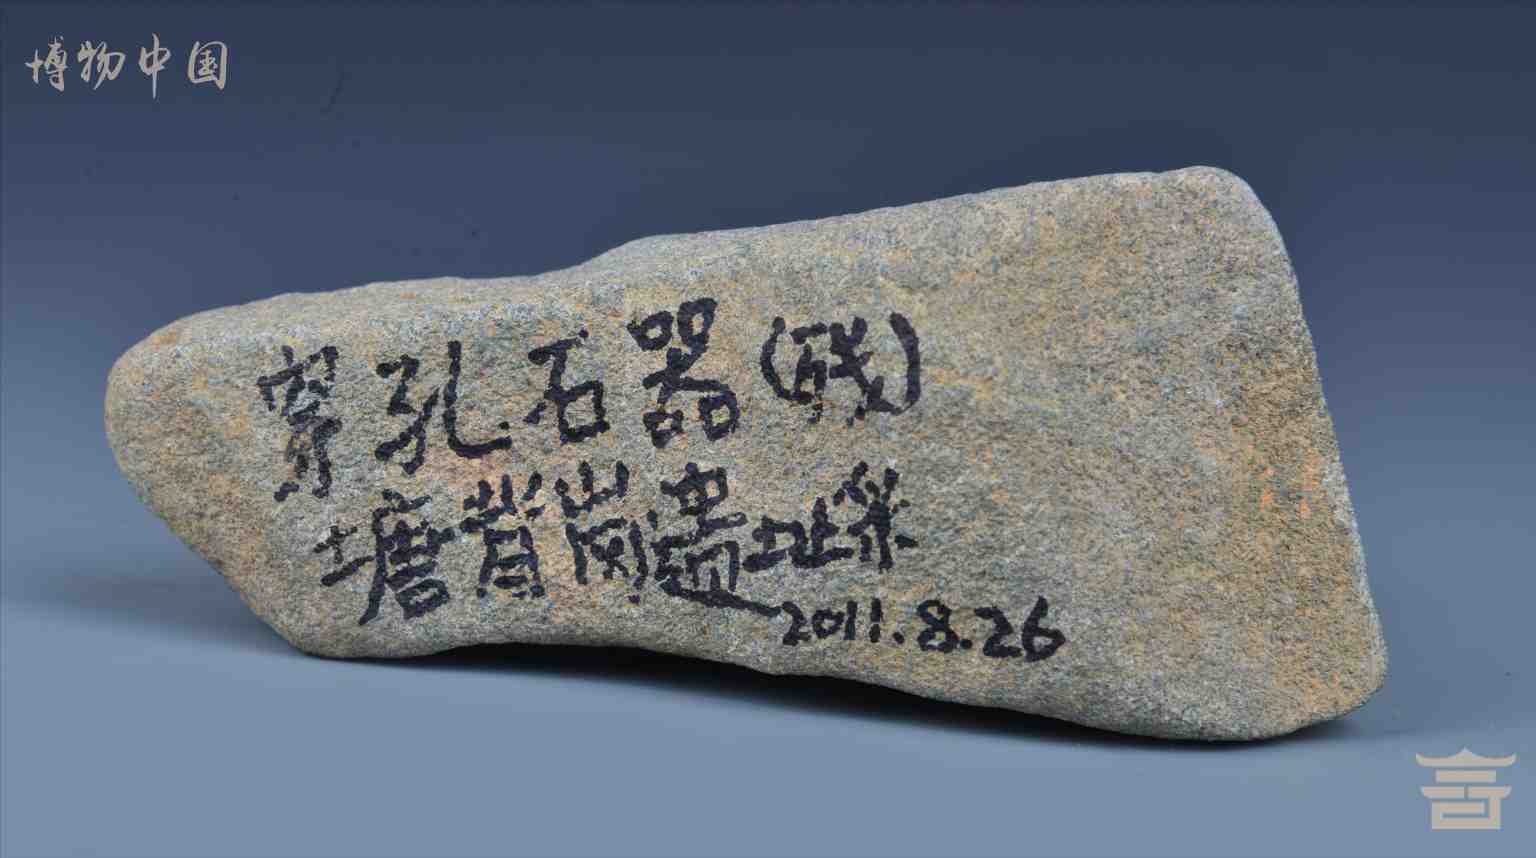 博物中国
穿孔石器(残)
塘背岗遗址采
2011.8.26